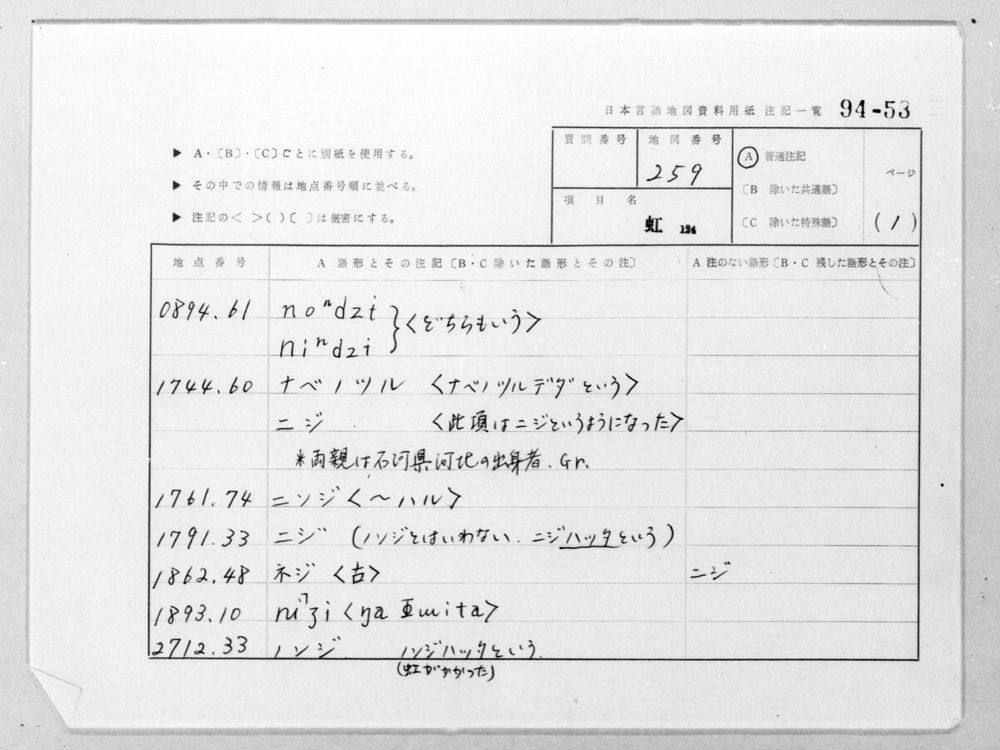 日本言語地図資料用紙 注記一覧 94-53
▶ A・〔B〕・〔C〕ごとに別紙を使用する。
▶ その中での情報は地点番号順に並べる。
▶ 注記の< >( )〔 〕は厳密にする。
質問番号 地図番号 259
項目名 虹 124
Ⓐ 普通注記
〔B 除いた共通語〕
〔C 除いた特殊語〕
ページ (1)
地点番号 A 語形とその注記〔B・C除いた語形とその注〕 A 注のない語形〔B・C 残した語形とその注〕
0894.61 noⁿdzi
niⁿdzi } <どちらもいう>
1744.60 ナベノツル <ナベノツルデダという>
ニジ <此頃はニジというようになった>
*両親は石河県河北の出身者. Gr.
1761.74 ニンジ <〜ハル>
1791.33 ニジ (ノンジとはいわない. ニジハッタという)
1862.48 ネジ <古> ニジ
1893.10
2712.33 ノンジ ノンジハッタという.
(虹がかかった)